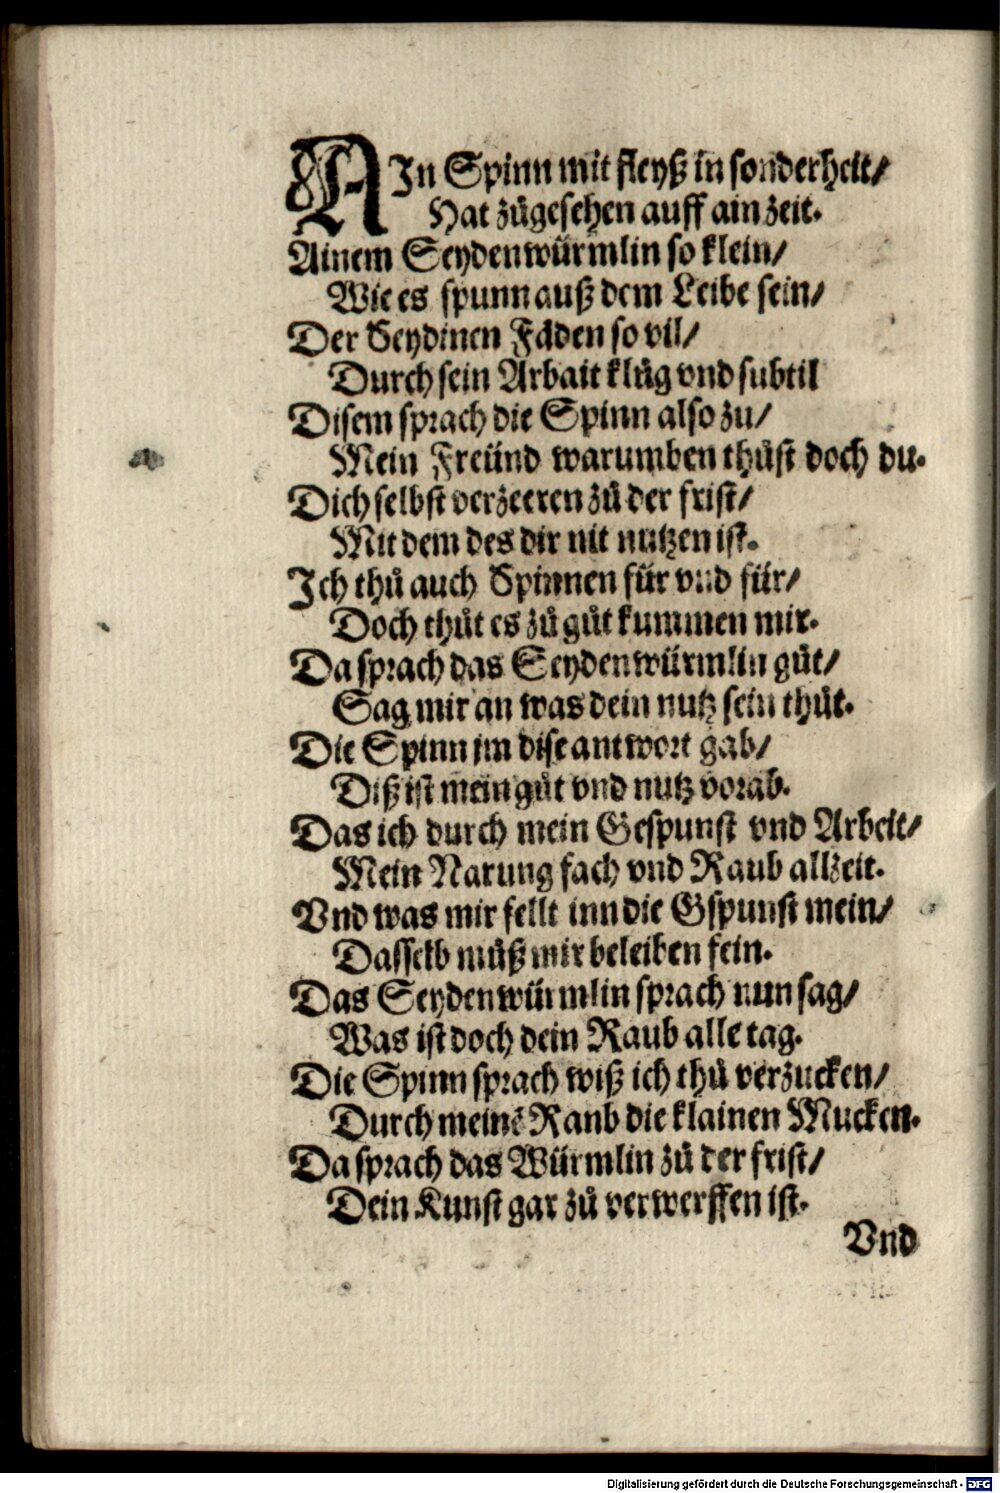 AIn Spinn mit fleyß in sonderheit/
Hat zůgesehen auff ain zeit.
Ainem Seydenwürmlin so klein/
Wie es spunn auß dem Leibe sein/
Der Seydinen Fäden so vil/
Durch sein Arbait klůg vnd subtil
Disem sprach die Spinn also zu/
Mein Freünd warumben thůst doch du.
Dich selbst verzeeren zů der frist/
Mit dem des dir nit nutzen ist.
Ich thů auch Spinnen für vnd für/
Doch thůt es zů gůt kummen mir.
Da sprach das Seydenwürmlin gůt/
Sag mir an was dein nutz sein thůt.
Die Spinn jm dise antwort gab/
Diß ist mein gůt vnd nutz vorab.
Das ich durch mein Gespunst vnd Arbeit/
Mein Narung fach vnd Raub allzeit.
Vnd was mir fellt inn die Gspunst mein/
Dasselb můß mir beleiben fein.
Das Seydenwürmlin sprach nun sag/
Was ist doch dein Raub alle tag.
Die Spinn sprach wiß ich thů verzucken/
Durch meinē Raub die klainen Mucken.
Da sprach das Würmlin zů der frist/
Dein Kunst gar zů verwerffen ist.
Vnd
Digitalisierung gefördert durch die Deutsche Forschungsgemeinschaft - DFG